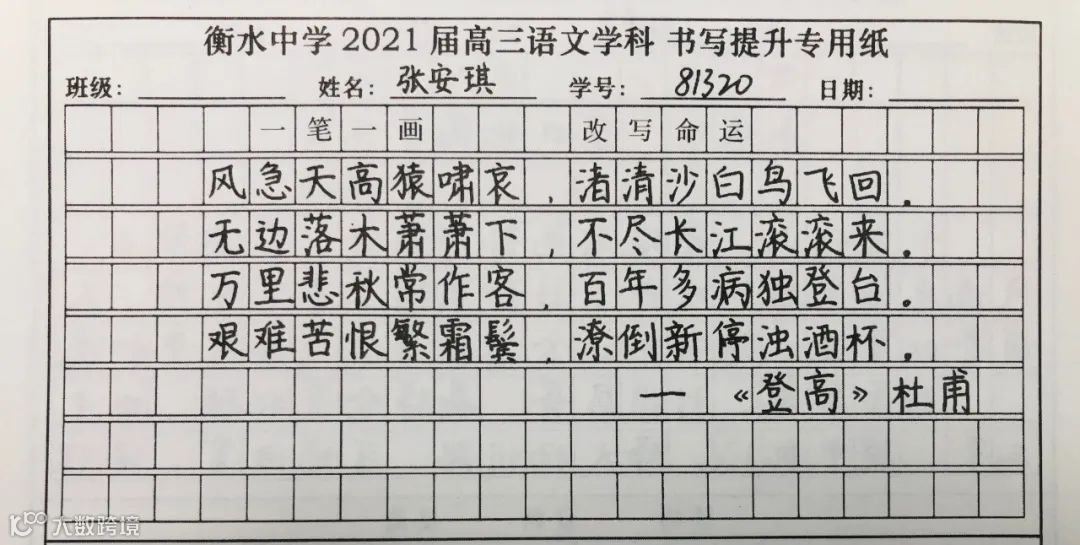 衡水中学 2021 届高三语文学科 书写提升专用纸
班级: 姓名: 张安琪 学号: 81320 日期:
一笔一画 改写命运
风急天高猿啸哀,渚清沙白鸟飞回.
无边落木萧萧下,不尽长江滚滚来.
万里悲秋常作客,百年多病独登台.
艰难苦恨繁霜鬓,潦倒新停浊酒杯.
—《登高》杜甫
大数跨境